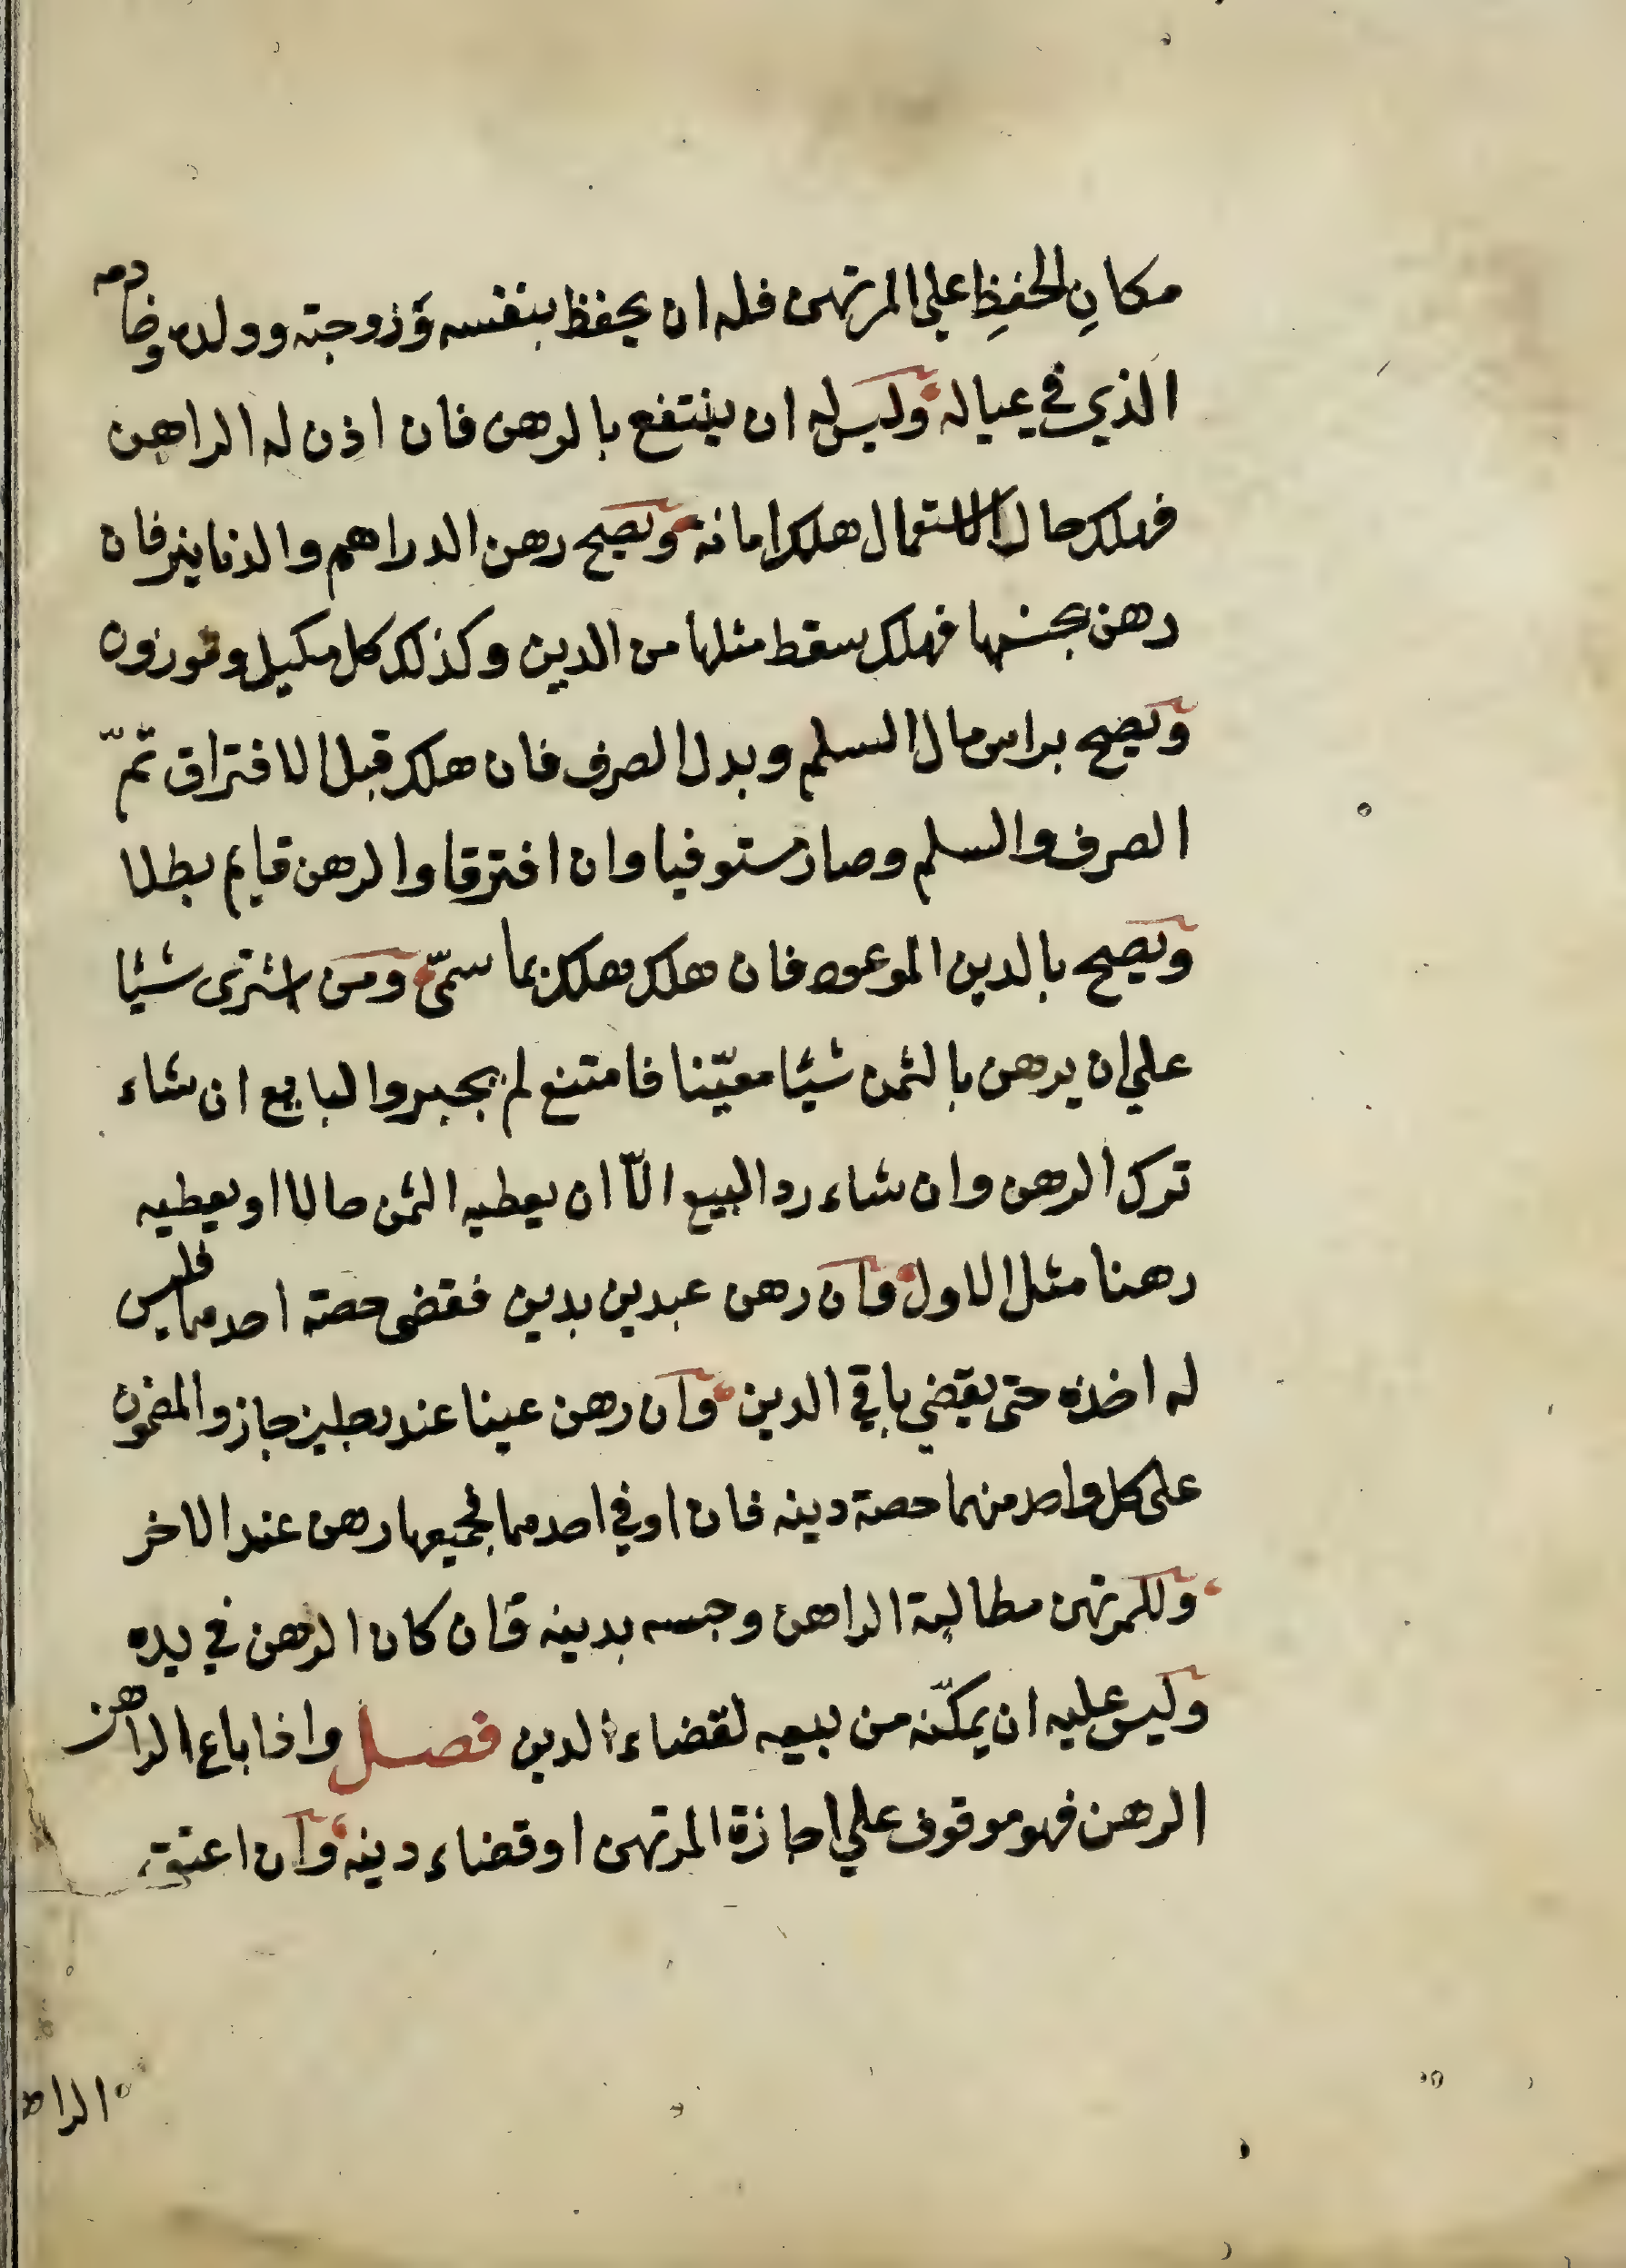 مكانِ الحفظِ علي المرتهن فله ان يحفظ بنفسه وَزوجته وولده وخادمه
الذي في عياله وليس له ان ينتفع بالرهن فان اذن له الراهن
فهلك حال الاستعمال هلك امانة ويصح رهن الدراهم والدنانير فان
رهن بجنسها فهلك سقط مثلها من الدين وكذلك كل مكيل وموزون
ويصح براس مال السلم وبدل الصرف فان هلك قبل الافتراق تمّ
الصرف والسلم وصار مستوفيا وان افترقا والرهن قايم بطلا
ويصح بالدين الموعود فان هلك هلك بما سمّى ومن اشترى شيئا
علي ان يرهن بالثمن شيئا معيّنا فامتنع لم يجبر والبايع ان شاء
ترك الرهن وان شاء رد البيع الاّ ان يعطيه الثمن حالا او يعطيه
رهنا مثل الاول وان رهن عبدين بدين فقضى حصة احدهما فليس
له اخذه حتى يقضي باقي الدين وان رهن عينا عند رجلين جاز والمضمون
على كل واحد منهما حصة دينه فان اوفي احدهما فجميعها رهن عند الاخر
وللمرتهن مطالبة الراهن وحبسه بدينه فان كان الرهن في يده
وليس عليه ان يمكّنه من بيعه لقضاء الدين فصل واذا باع الراهن
الرهن فهو موقوف علي اجازة المرتهن او قضاء دينه وان اعتق
الراه